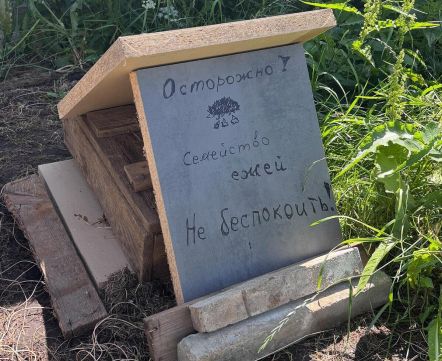 Осторожно!
Семейство
ежей
Не беспокоить!